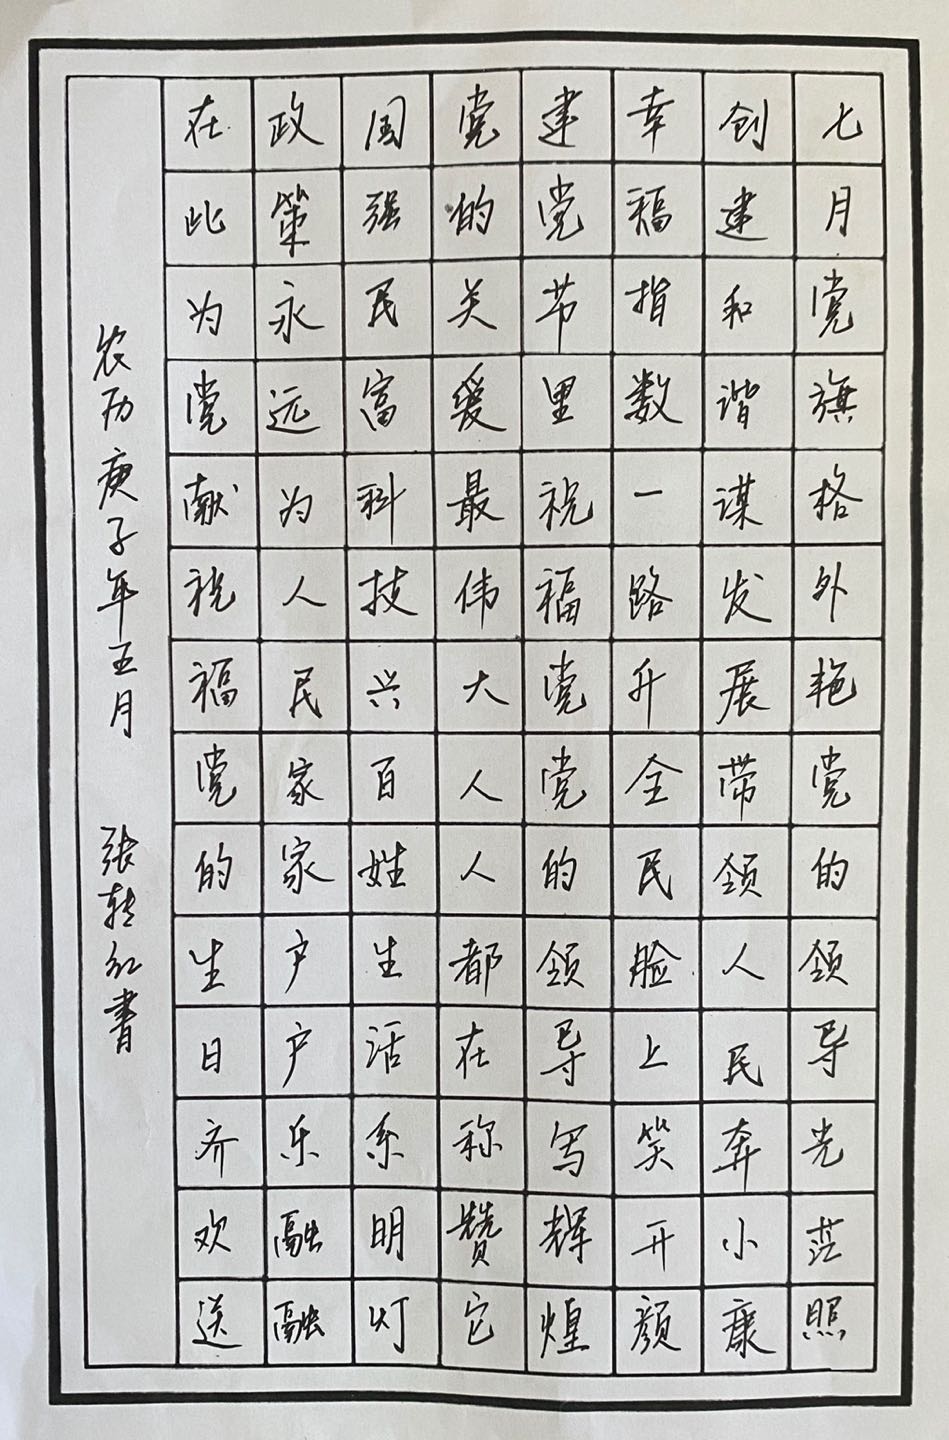 七月党旗格外艳党的领导光芒照
创建和谐谋发展带领人民奔小康
幸福指数一路升全民脸上笑开颜
建党节里祝福党党的领导写辉煌
党的关爱最伟大人人都在称赞它
国强民富科技兴百姓生活系明灯
政策永远为人民家家户户乐融融
在此为党献祝福党的生日齐欢送
农历庚子年五月 张转红書